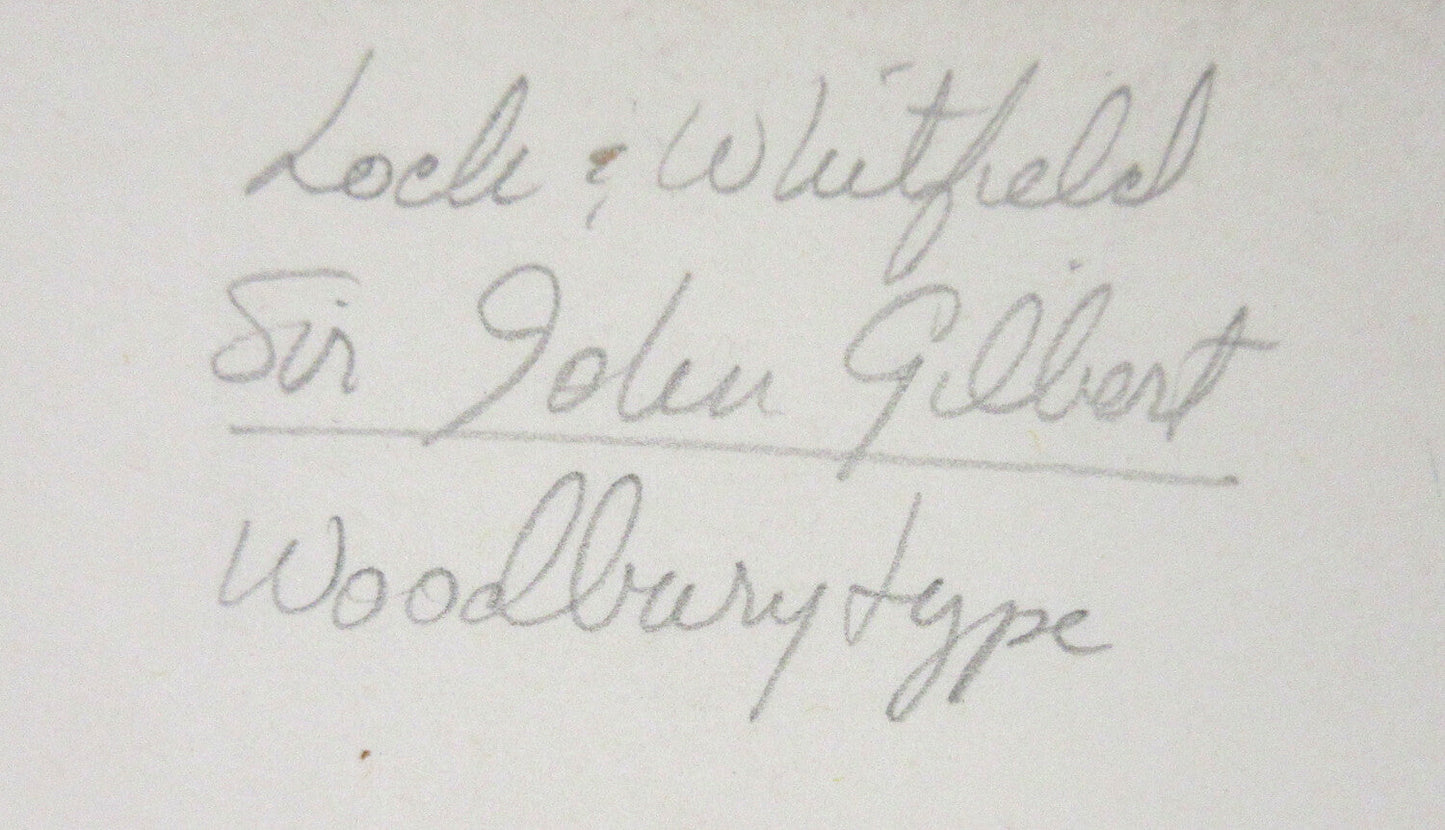 Lock & Whitfield
Sir John Gilbert
Woodburytype